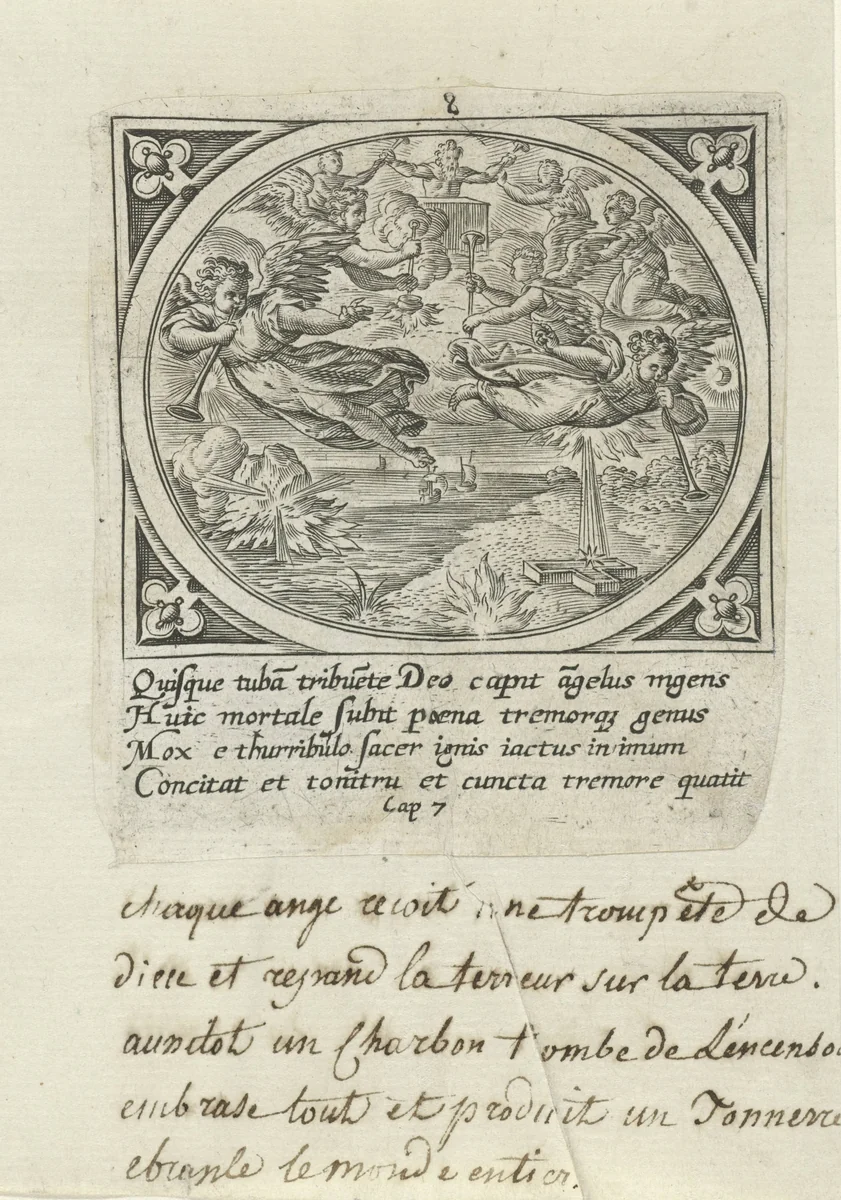 8
Quisque tubā tribuēte Deo capit āgelus ingens
Huic mortale subit pœna tremorqʒ genus
Mox e thurribulo sacer ignis iactus in imum
Concitat et tonitru et cuncta tremore quatit
Cap 7
chaque ange recoit une trompéte de
dieu et repand la terreur sur la terre.
aussitot un Charbon tombe de L'encenso
embrase tout et produit un Tonnerre
ebranle le monde entier.